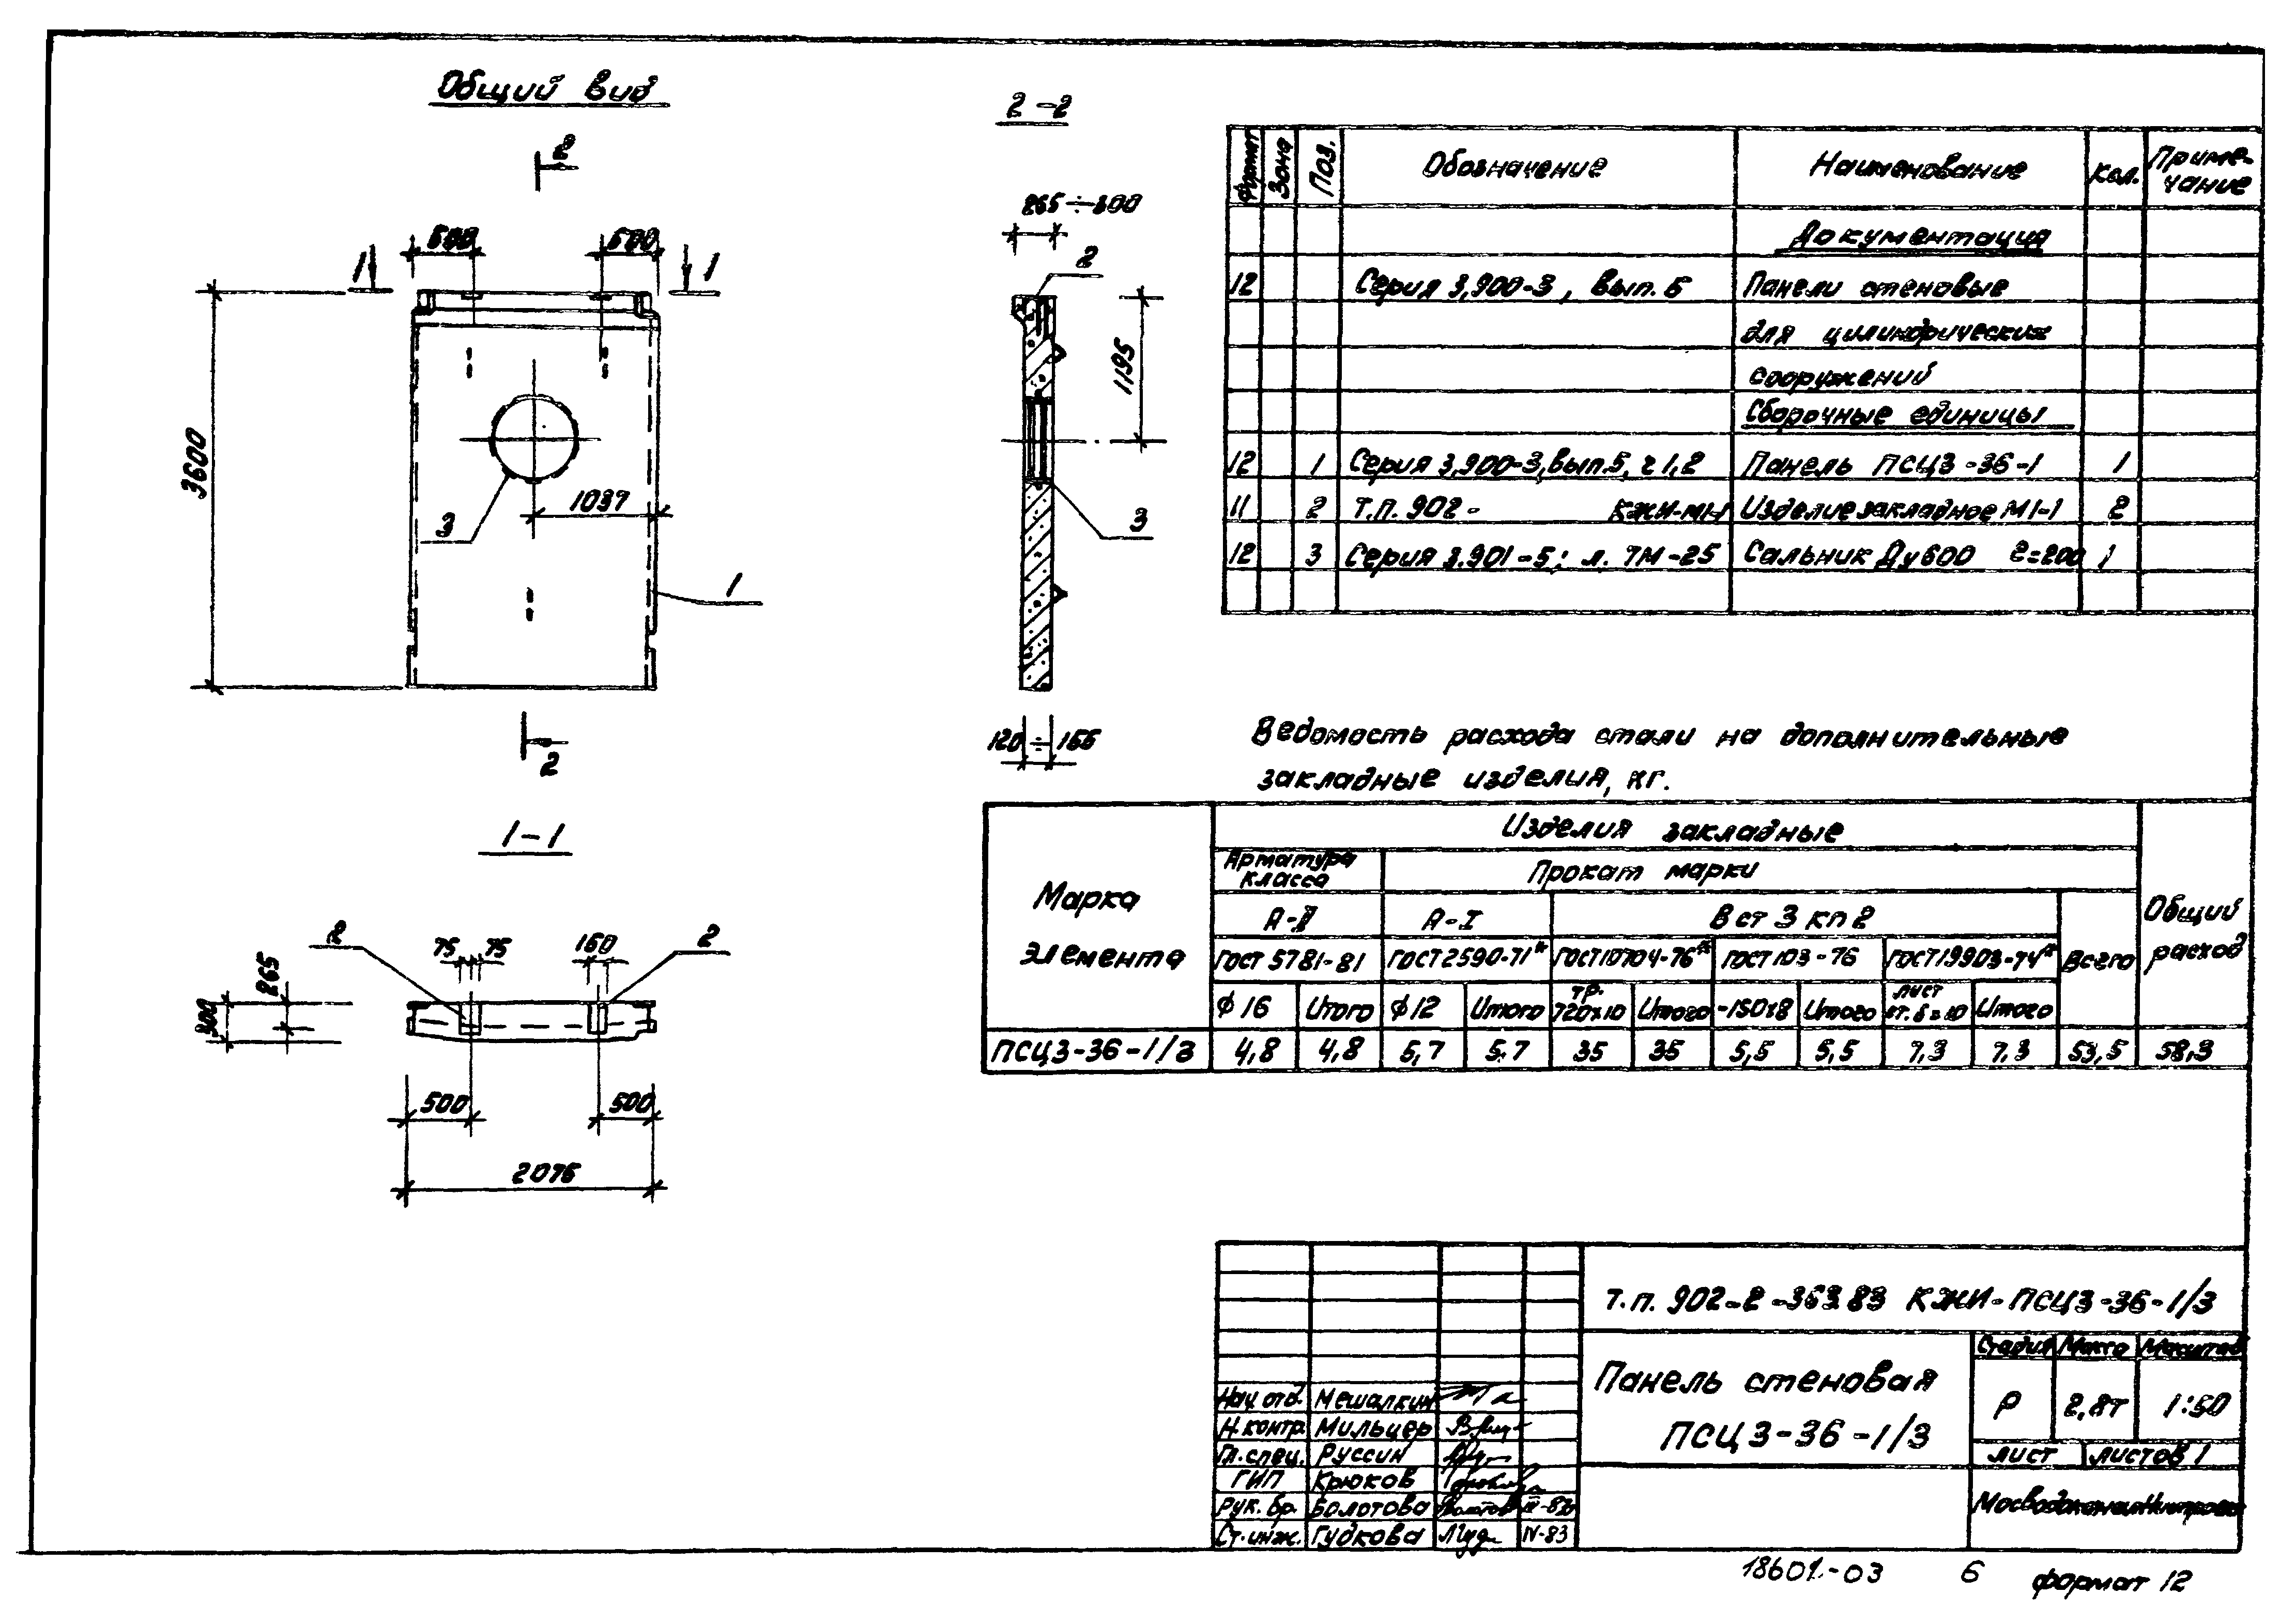 Общий вид
2
500
500
1
1
3600
1037
3
1
2
2-2
265÷300
2
1195
3
120÷166
1-1
2
75
75
150
2
265
300
500
500
2075
Формат Зона Поз. Обозначение Наименование Кол. Приме-
чание
Документация
12 Серия 3.900-3, вып. 5 Панели стеновые
для цилиндрических
сооружений
Сборочные единицы
12 1 Серия 3.900-3, вып.5, ч 1,2 Панель ПСЦ3-36-1 1
11 2 Т.П. 902- КЖИ-МН Изделие закладное М1-1 2
12 3 Серия 3.901-5; л. ТМ-25 Сальник Ду600 ℓ=200 1
Ведомость расхода стали на дополнительные
закладные изделия, кг.
Марка элемента
Изделия закладные
Общий расход
Арматура класса
Прокат марки
А-II А-I В ст 3 кп 2 Всего
ГОСТ 5781-81 ГОСТ 2590-71* ГОСТ10704-76* ГОСТ 103-76 ГОСТ19903-74*
ϕ16 Итого ϕ12 Итого тр. 720х10 Итого -150х8 Итого лист ст. δ=10 Итого
ПСЦ3-36-1/3 4,8 4,8 5,7 5,7 35 35 5,5 5,5 7,3 7,3 53,5 58,3
Т.п. 902-2-363.83 КЖИ-ПСЦ3-36-1/3
Панель стеновая
ПСЦ3-36-1/3
Стадия Масса Масштаб
Р 2,8т 1:50
лист листов 1
МосводоканалНИИпроект
Нач. отд. Мешалкин
Н.контр. Мильцер
Гл.спец. Руссин
ГИП Крюков
Рук. бр. Болотова
Ст.инж. Гудкова IV-83
18601-03 6 формат 12